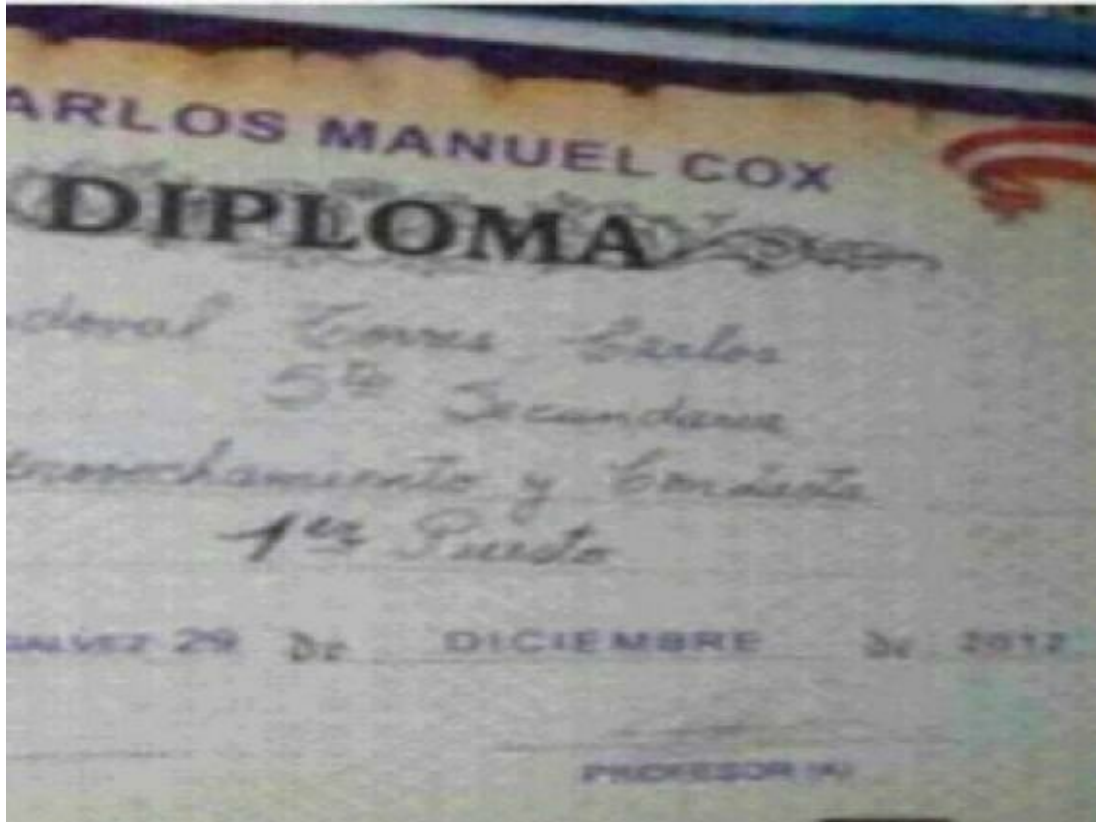 ARLOS MANUEL COX
DIPLOMA
ndoval Torres Carlos
5to Secundaria
provechamiento y Conducta
1er Puesto
GALVEZ 29 De DICIEMBRE de 2012
PROFESOR (A)